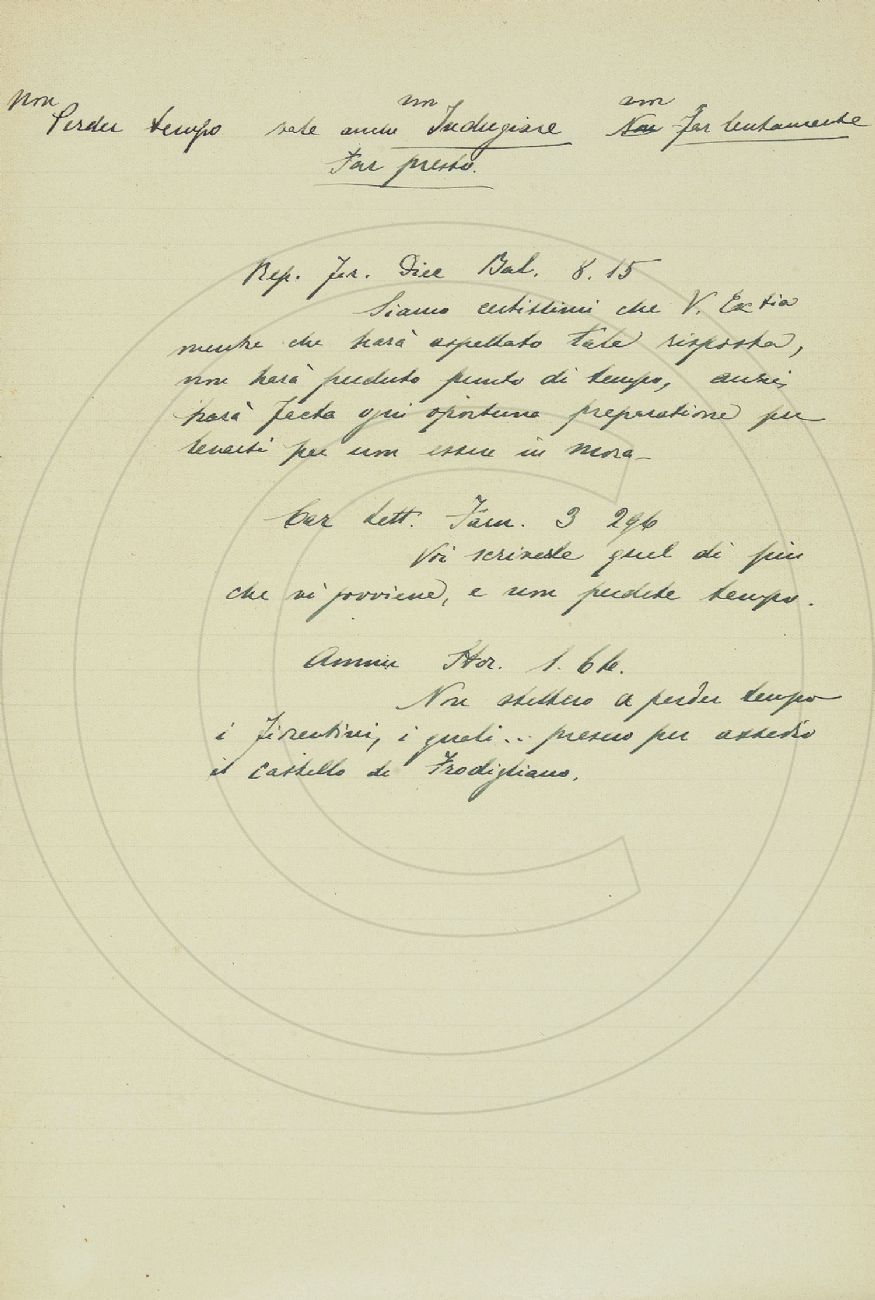 non non non
Perder tempo vale anche Indugiare Non Far lentamente
Far presto.
Rep. Fir. Diec Bal. 8. 15
Siamo certissimi che V. Extia
mentre che harà aspettato tale risposta,
non harà perduto punto di tempo, anzi,
harà facta ogni oportuna preparatione per
levarsi per non essere in mora_
Car Lett. Fam. 3 296
Voi scrivete quel di più
che vi sovviene, e non perdete tempo.
Ammir Stor. 1.
Non stettero a perder tempo
i Fiorentini, i quali... presero per assedio
il castello di Frodigliano.